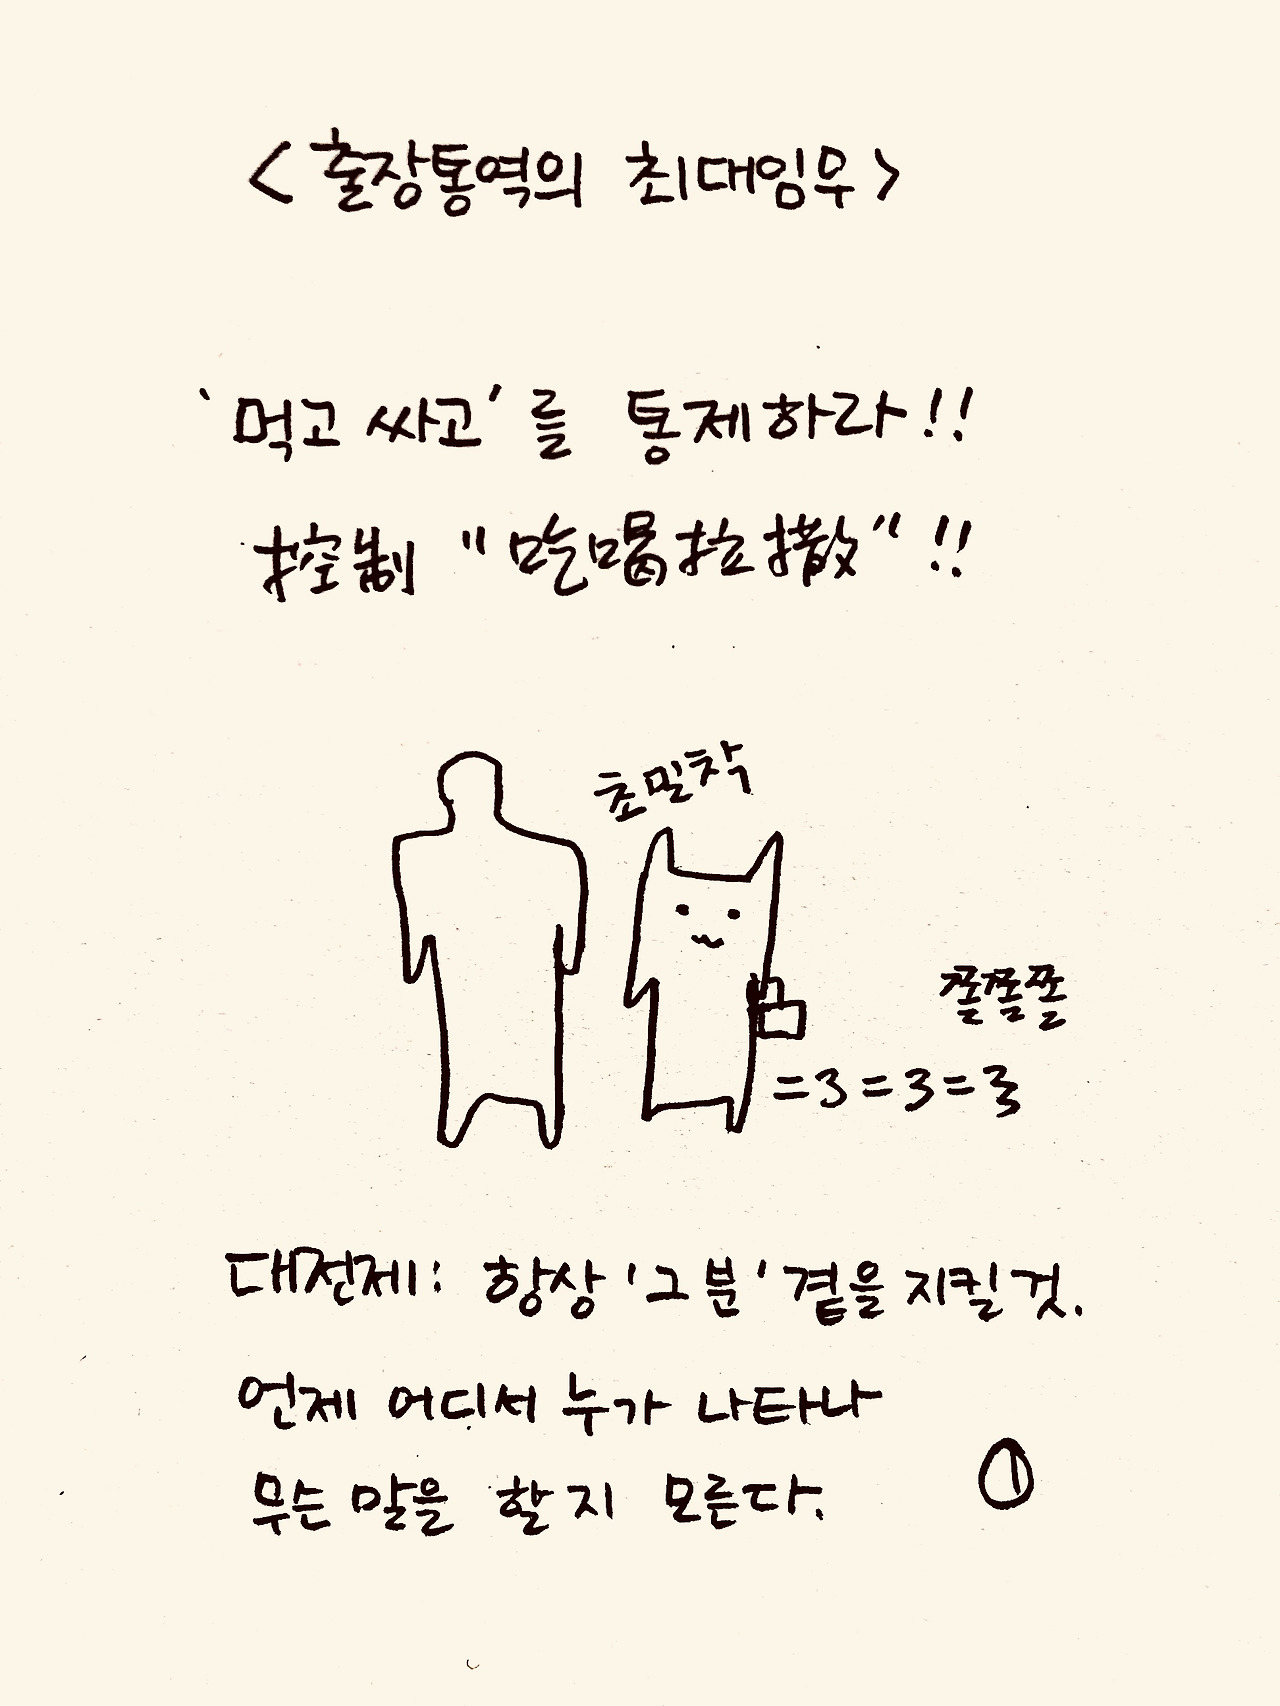 <출장통역의 최대임무>
'먹고 싸고'를 통제하라!!
控制 "吃喝拉撒"!!
초밀착
쫄쫄쫄
=3=3=3
대전제: 항상 '그분' 곁을 지킬 것.
언제 어디서 누가 나타나
무슨 말을 할지 모른다.
①